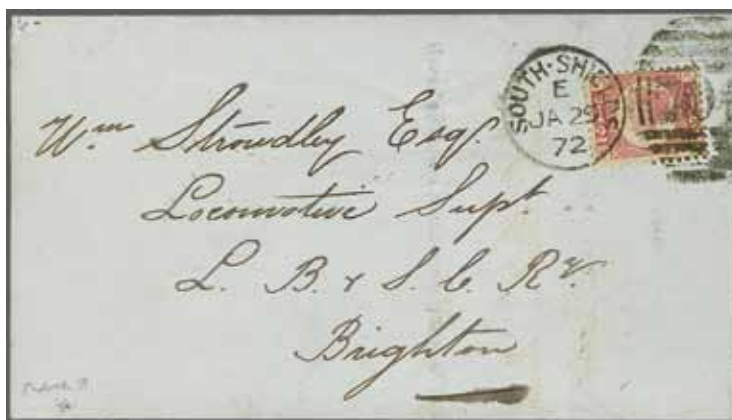 SOUTH-SHIELDS
E
JA 29
72
Wm Stroudley Esq.
Locomotive Supt.
L. B. & S. C. Ry.
Brighton